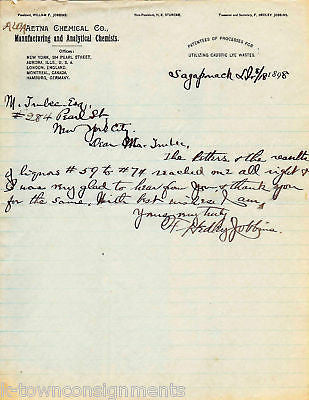 President, William F. Jobbins. Vice-President, H. E. Sturcke. Treasurer and Secretary, F. Hedley Jobbins.
Aetna Chemical Co.,
Manufacturing and Analytical Chemists.
Offices:
New York, 284 Pearl Street,
Aurora, Ills., U. S. A.
London, England.
Montreal, Canada,
Hamburg, Germany.
Patentees of Processes for
Utilizing Caustic Lye Wastes.
Sagaponack 1898
M. Esq
# 284 Pearl St
New York City
Dear Mr.
The letters & the results
of liquors # 59 to # 74 reached me all right &
I was very glad to hear from you & thank you
for the same. With best wishes I am
Yours very truly
F. Hedley Jobbins
k-townconsignments